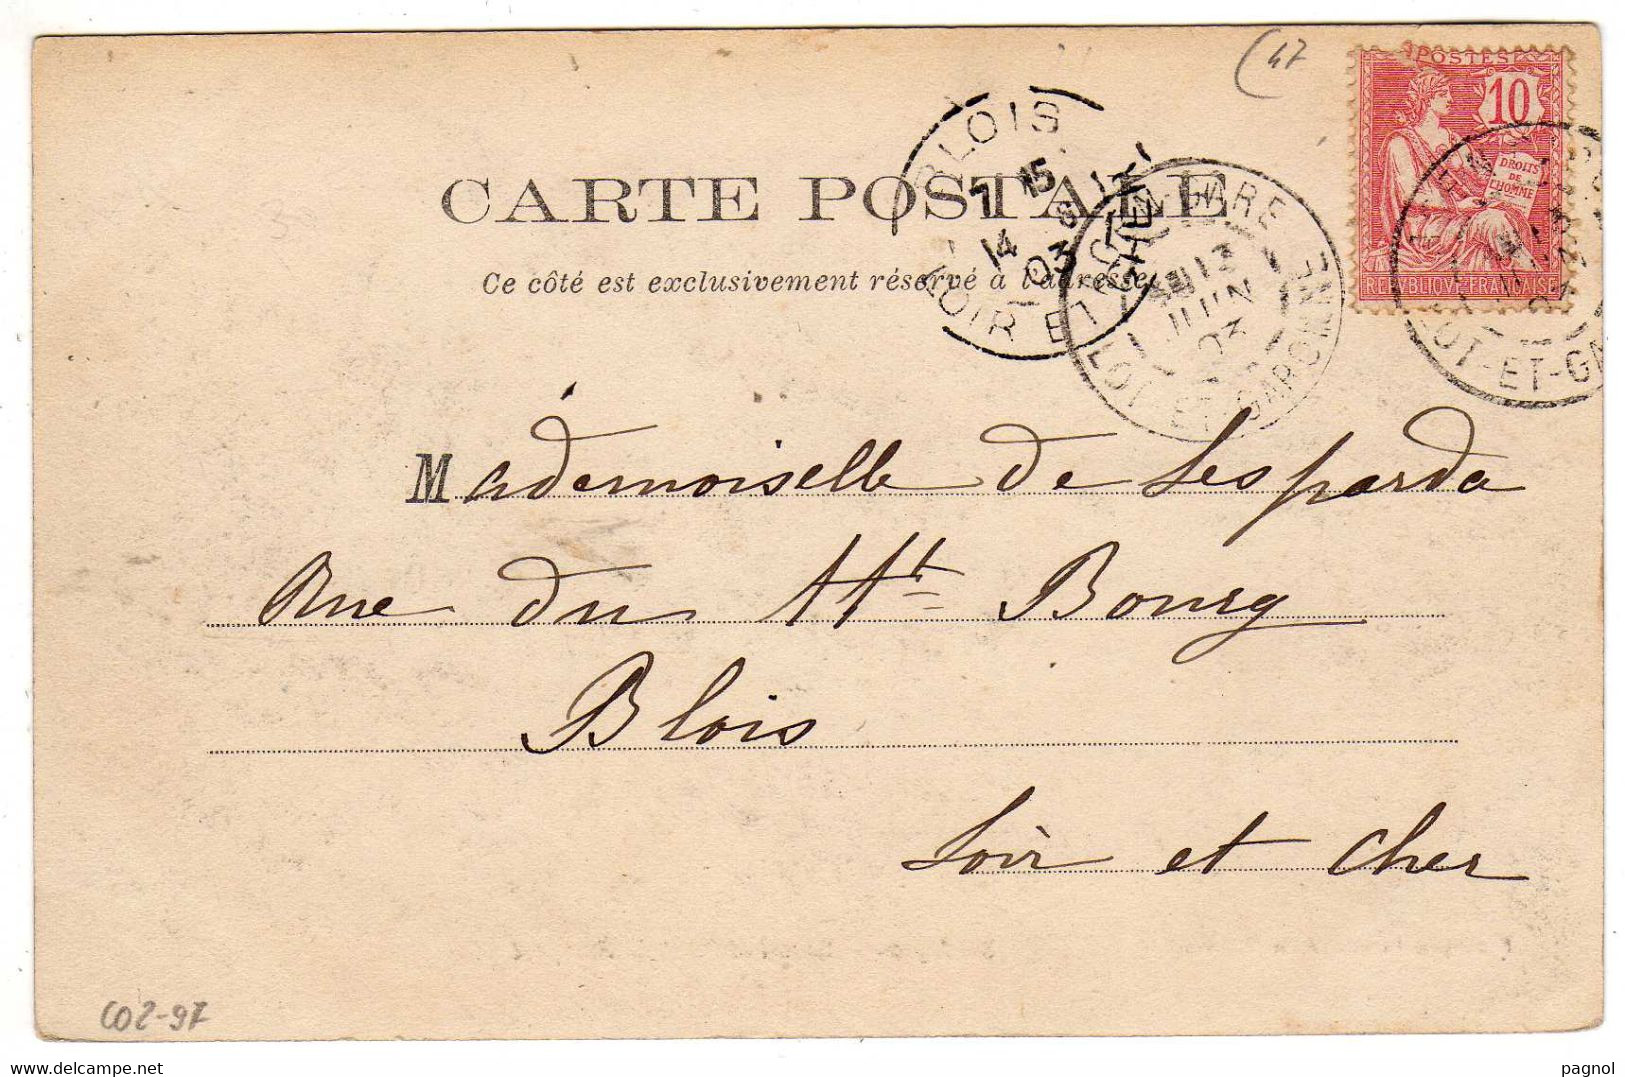 (47
POSTES
10
DROITS
DE
L'HOMME
REPVBLIQVE FRANÇAISE
BLOIS
7 15
14 6
03
LOIR ET CHER
AGEN-GARE
13
JUIN
03
LOT-ET-GARONNE
LOT-ET-GA
CARTE POSTALE
Ce côté est exclusivement réservé à l'adresse
Mademoiselle de Lesparda
Rue du Ht Bourg
Blois
Loir et Cher
C02-97
www.delcampe.net
pagnol